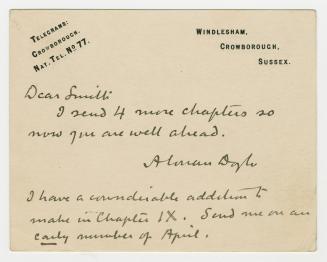 TELEGRAMS:
CROWBOROUGH.
NAT. TEL. NO 77.
WINDLESHAM,
CROWBOROUGH,
SUSSEX.
Dear Smith
I send 4 more chapters so
now you are well ahead.
A Conan Doyle
I have a considerable addition to
make in Chapter IX. Send me on an
early number of April.